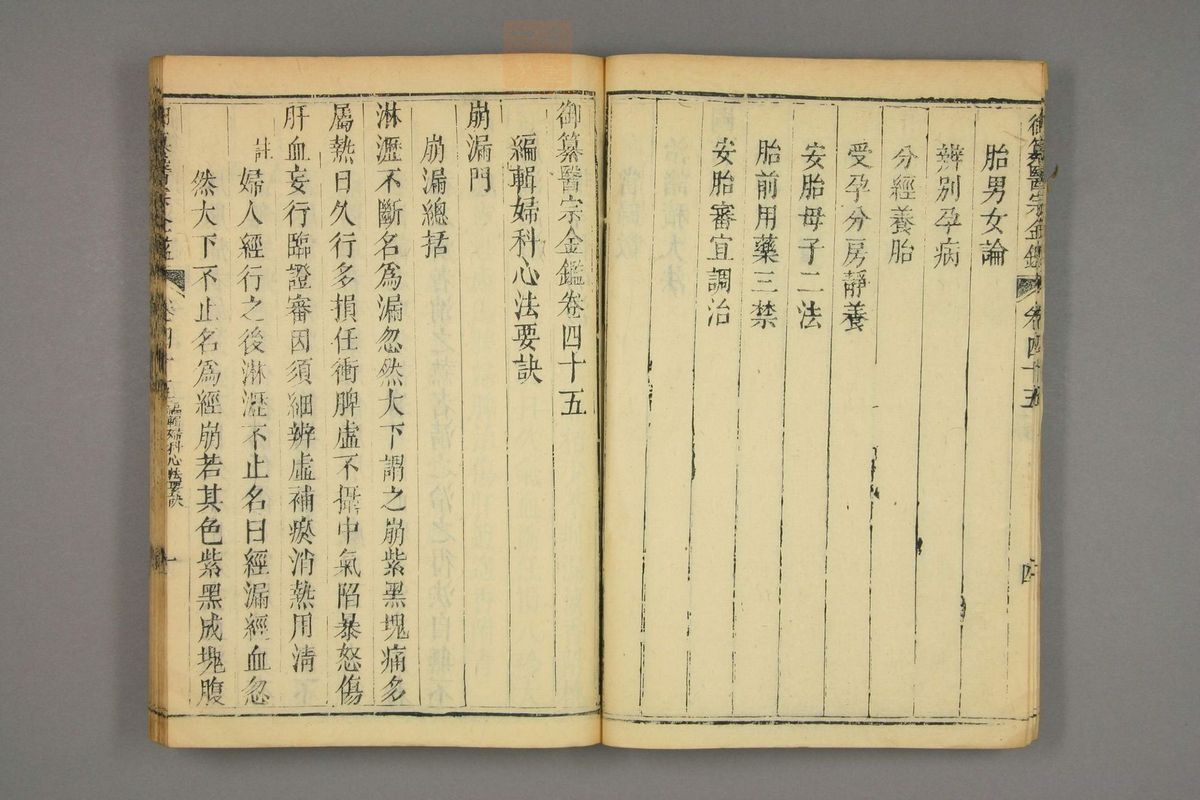 胎男女論
辨別孕病
分經養胎
受孕分房靜養
安胎母子二法
胎前用藥三禁
安胎審宜調治
御纂醫宗金鑑卷四十五
編輯婦科心法要訣
崩漏門
崩漏總括
淋瀝不斷名爲漏忽然大下謂之崩紫黑塊痛多
屬熱日久行多損任衝脾虛不攝中氣陷暴怒傷
肝血妄行臨證審因須細辨虛補瘀消熱用清
註
婦人經行之後淋瀝不止名曰經漏經血忽
然大下不止名爲經崩若其色紫黑成塊腹
御纂醫宗金鑑 卷四十五 四
編輯婦科心法要訣 一